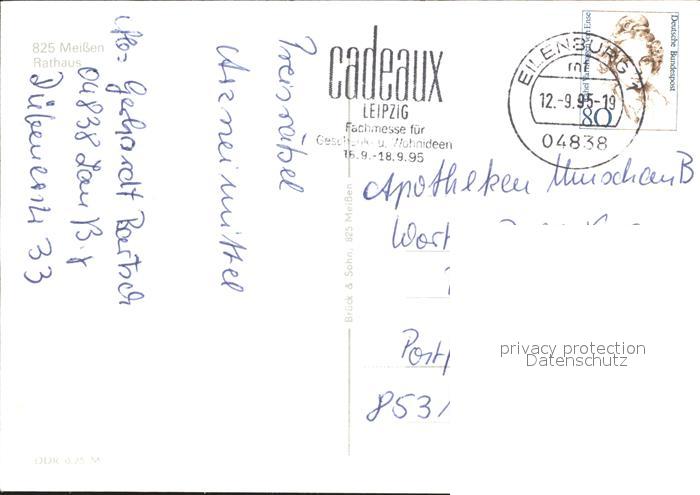 825 Meißen
Rathaus
Preisrätsel
Arzneimittel
Abs: Gerhardt
04838
33
cadeaux
LEIPZIG
Fachmesse für
Geschenk- u. Wohnideen
16.9.-18.9.95
EILENBURG 1
mf
12.-9.95-19
04838
Deutsche Bundespost
80
Apotheken Umschau B
Wort
Post
853
Brück & Sohn, 825 Meißen
privacy protection
Datenschutz
DDR 0,25 M